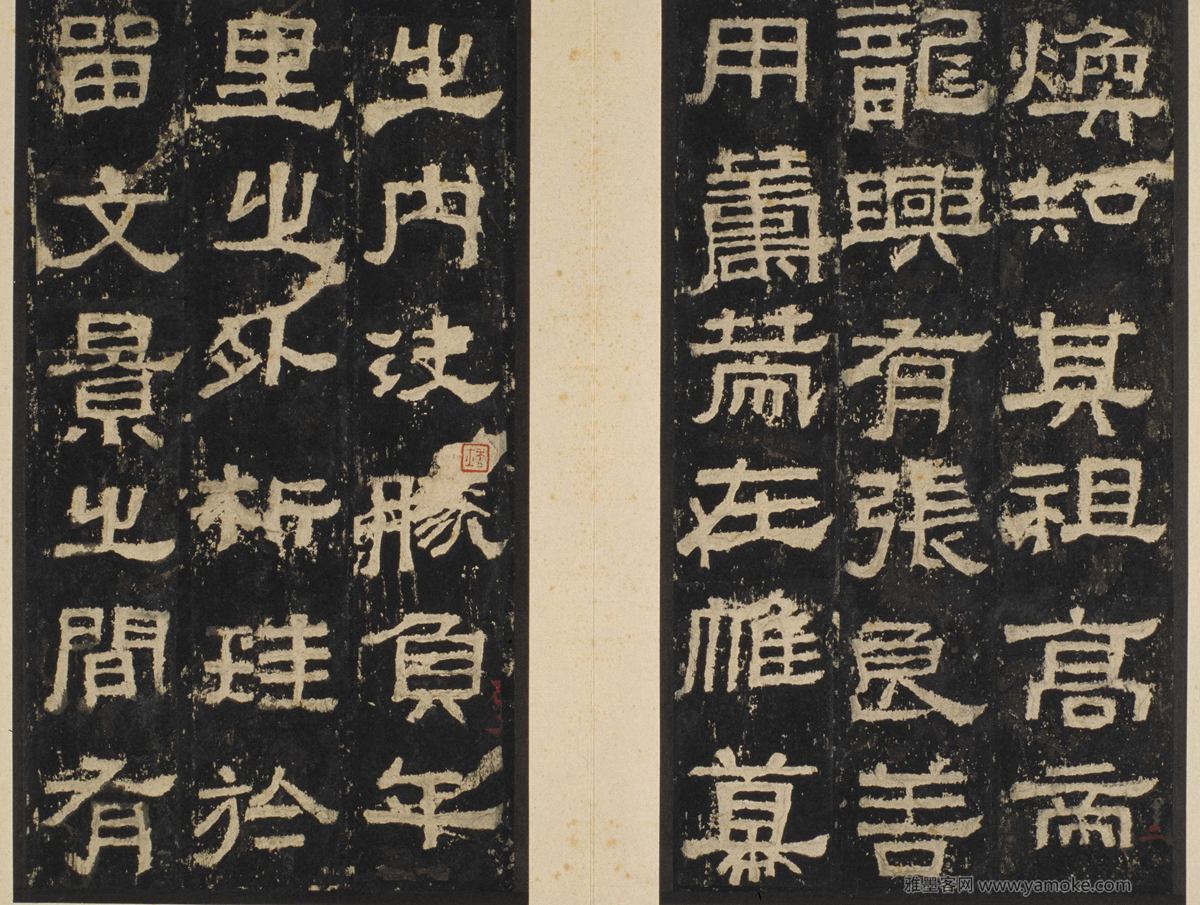 煥知其祖高帝
龍興有張良善
用籌策在帷幕
之內決勝負千
里之外析珪於
留文景之間有
雅墨客网 www.yamoke.com